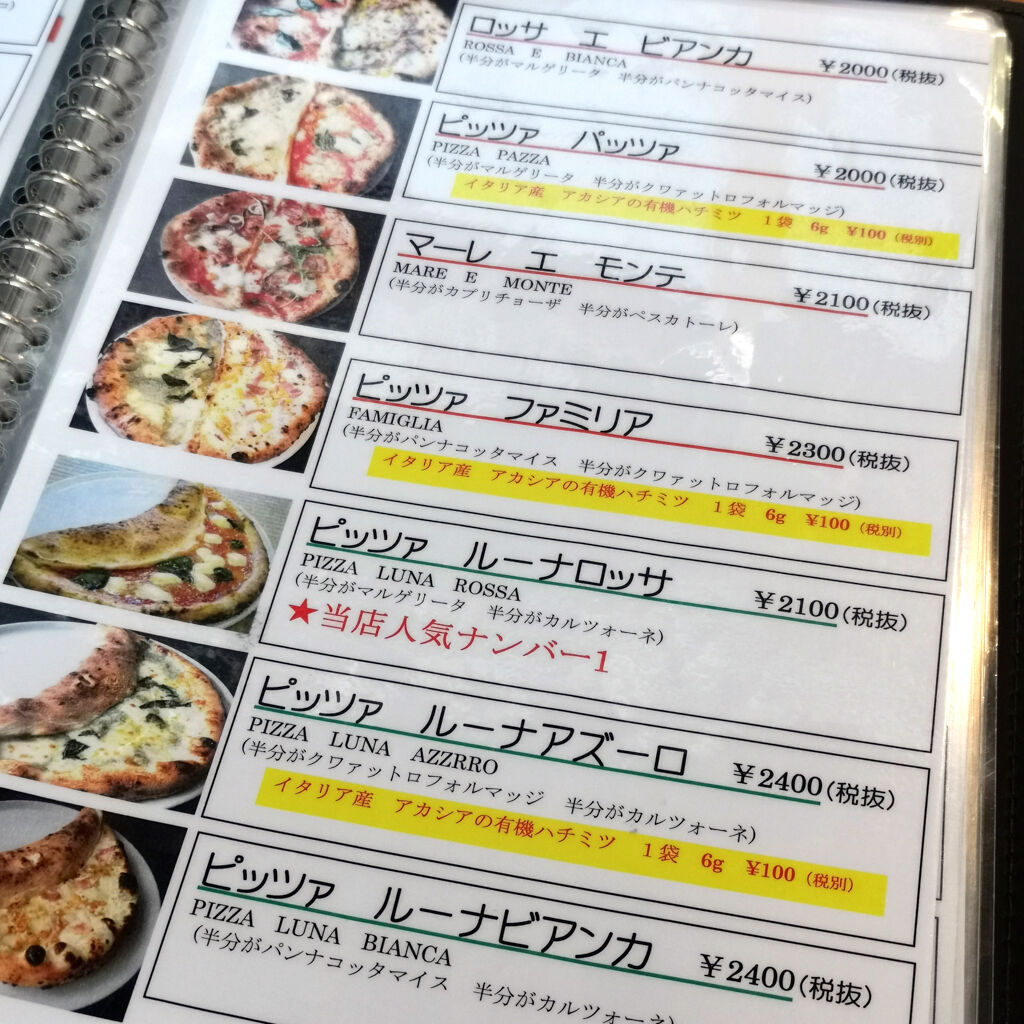 ロッサ　エ　ビアンカ
ROSSA　E　BIANCA　￥2000(税抜)
(半分がマルゲリータ　半分がパンナコッタマイス)
ピッツァ　パッツァ
PIZZA　PAZZA　￥2000(税抜)
(半分がマルゲリータ　半分がクワァットロフォルマッジ)
イタリア産　アカシアの有機ハチミツ　1袋　6g　¥100（税別）
マーレ　エ　モンテ
MARE　E　MONTE　￥2100(税抜)
(半分がカプリチョーザ　半分がペスカトーレ)
ピッツァ　ファミリア
FAMIGLIA　￥2300(税抜)
(半分がパンナコッタマイス　半分がクワァットロフォルマッジ)
イタリア産　アカシアの有機ハチミツ　1袋　6g　¥100（税別）
ピッツァ　ルーナロッサ
PIZZA　LUNA　ROSSA　￥2100(税抜)
(半分がマルゲリータ　半分がカルツォーネ)
★当店人気ナンバー1
ピッツァ　ルーナアズーロ
PIZZA　LUNA　AZZRRO　￥2400(税抜)
(半分がクワァットロフォルマッジ　半分がカルツォーネ)
イタリア産　アカシアの有機ハチミツ　1袋　6g　¥100（税別）
ピッツァ　ルーナビアンカ
PIZZA　LUNA　BIANCA　￥2400(税抜)
(半分がパンナコッタマイス　半分がカルツォーネ)